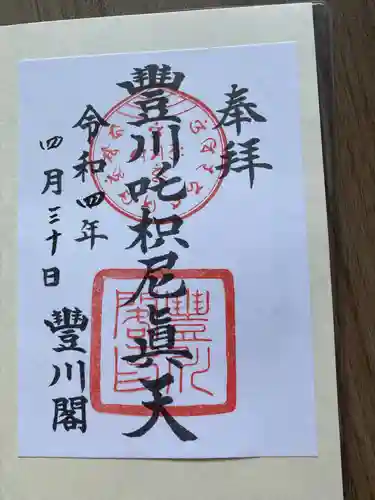 奉拝
豐川吒枳尼眞天
令和四年
四月三十日
豐川閣